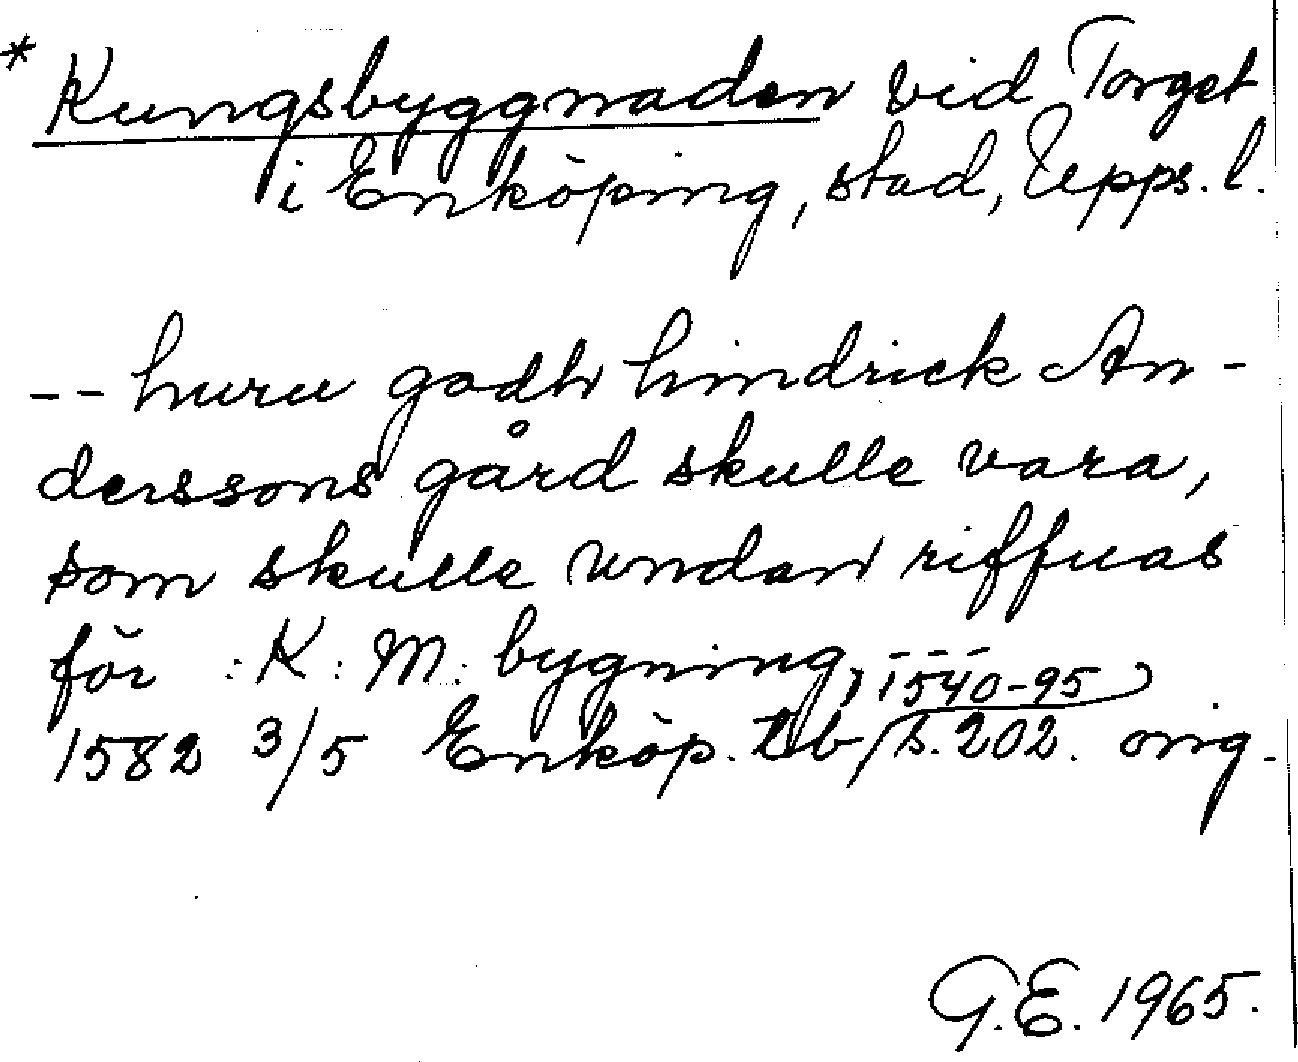 * Kungsbyggnaden vid Torget
i Enköping, stad, Upps. l.
-- huru godh hindrick An-
derssons gård skulle vara,
som skulle undan riffuas
för :K: M: bygning, ---
1582 3/5 Enköp. tb 1540-95 s. 202. orig.
G.E. 1965.